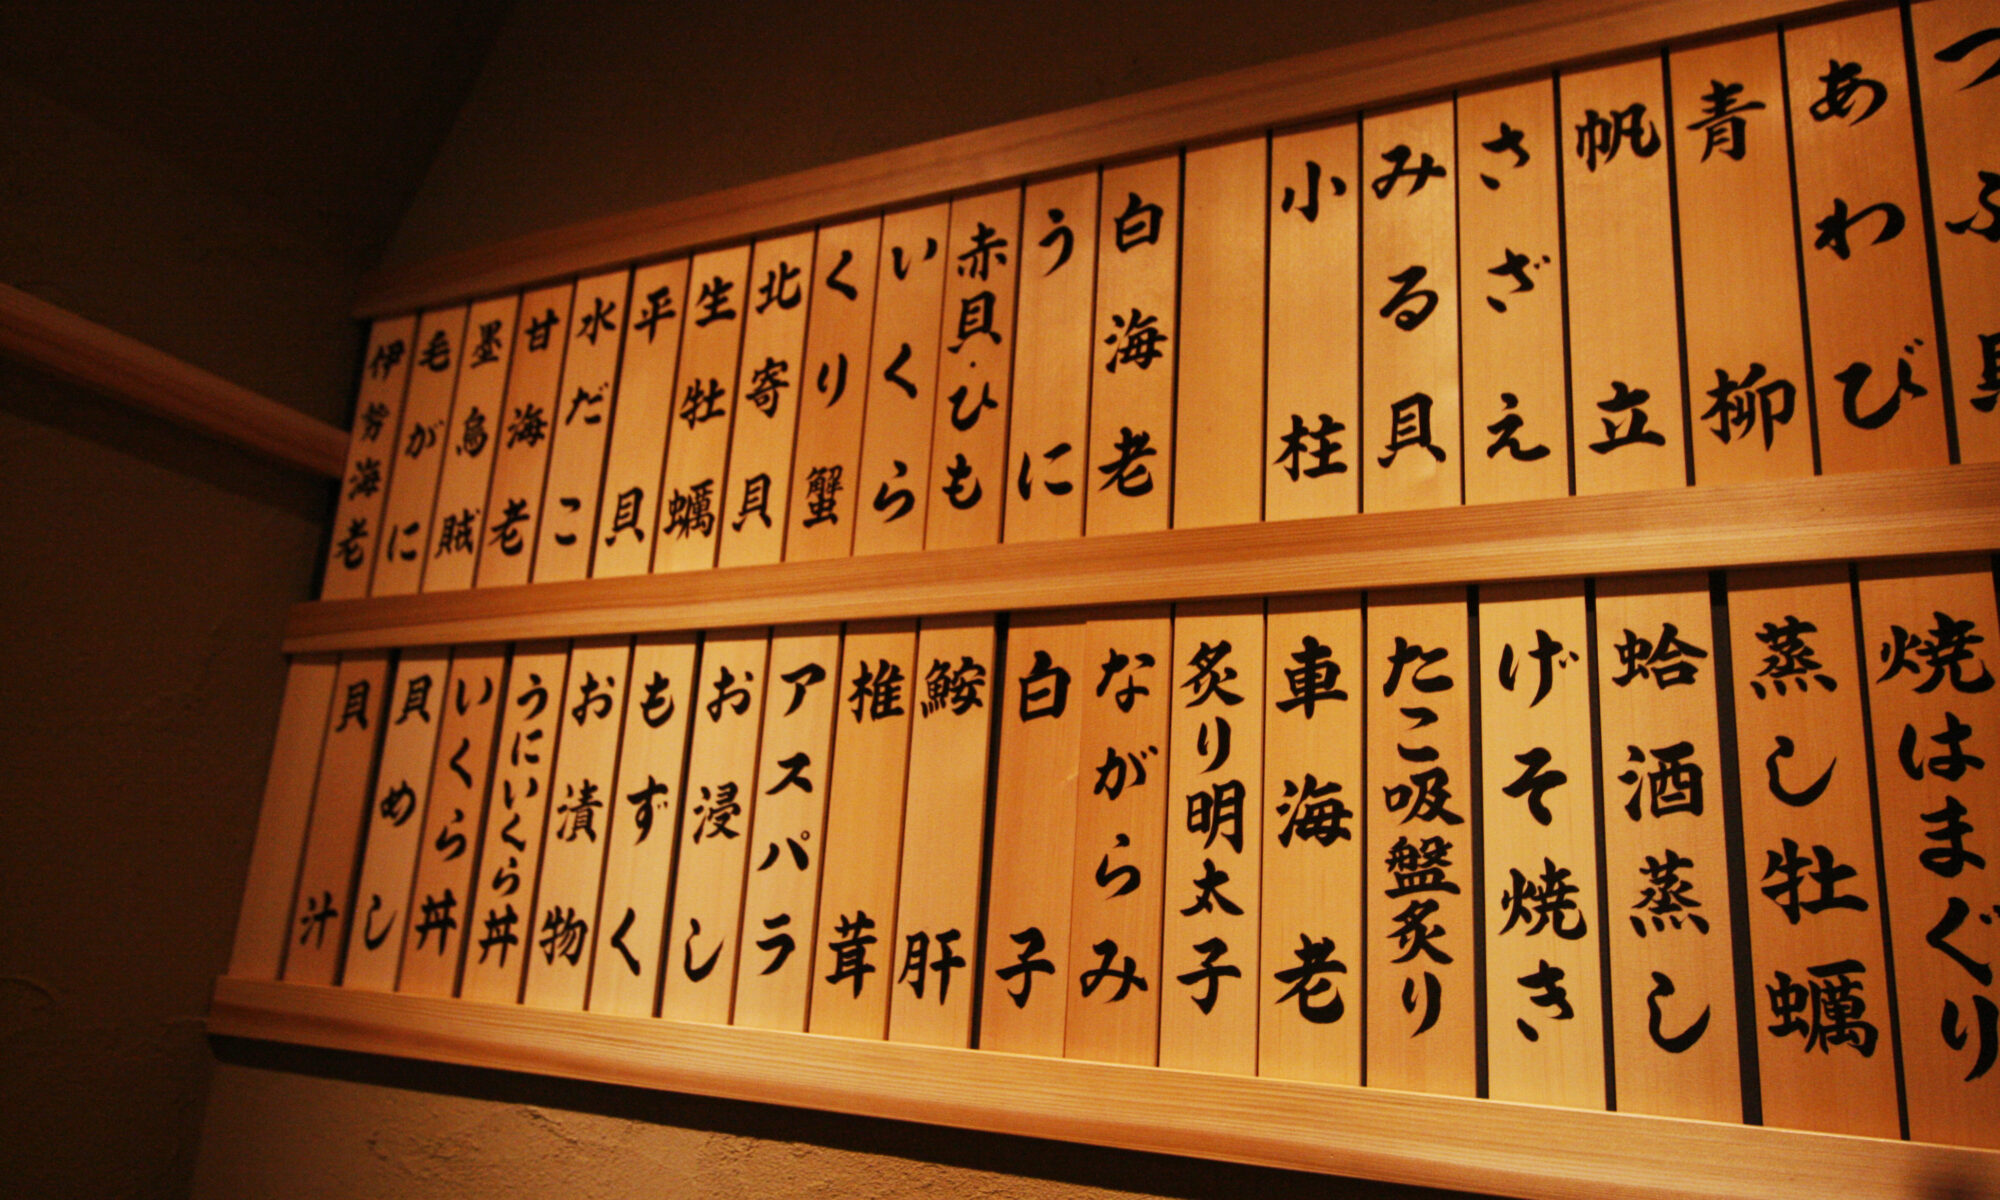 つぶ貝
あわび
青柳
帆立
さざえ
みる貝
小柱
白海老
うに
赤貝・ひも
いくら
くり蟹
北寄貝
生牡蠣
平貝
水だこ
甘海老
墨烏賊
毛がに
伊勢海老
焼はまぐり
蒸し牡蠣
蛤酒蒸し
げそ焼き
たこ吸盤炙り
車海老
炙り明太子
ながらみ
白子
鮟肝
椎茸
アスパラ
お浸し
もずく
お漬物
うにいくら丼
いくら丼
貝めし
貝汁